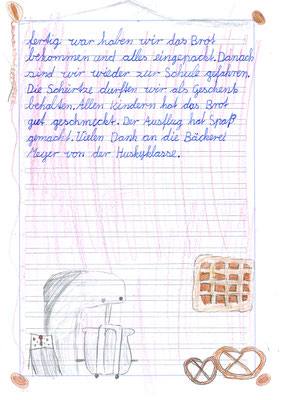 fertig war haben wir das Brot
bekommen und alles eingepackt. Danach
sind wir wieder zur Schule gefahren.
Die Schürtze durften wir als Geschenk
behalten. Allen Kindern hat das Brot
gut geschmeckt. Der Ausflug hat Spaß
gemacht. Vielen Dank an die Bäckerei
Meyer von der Huskyklasse.